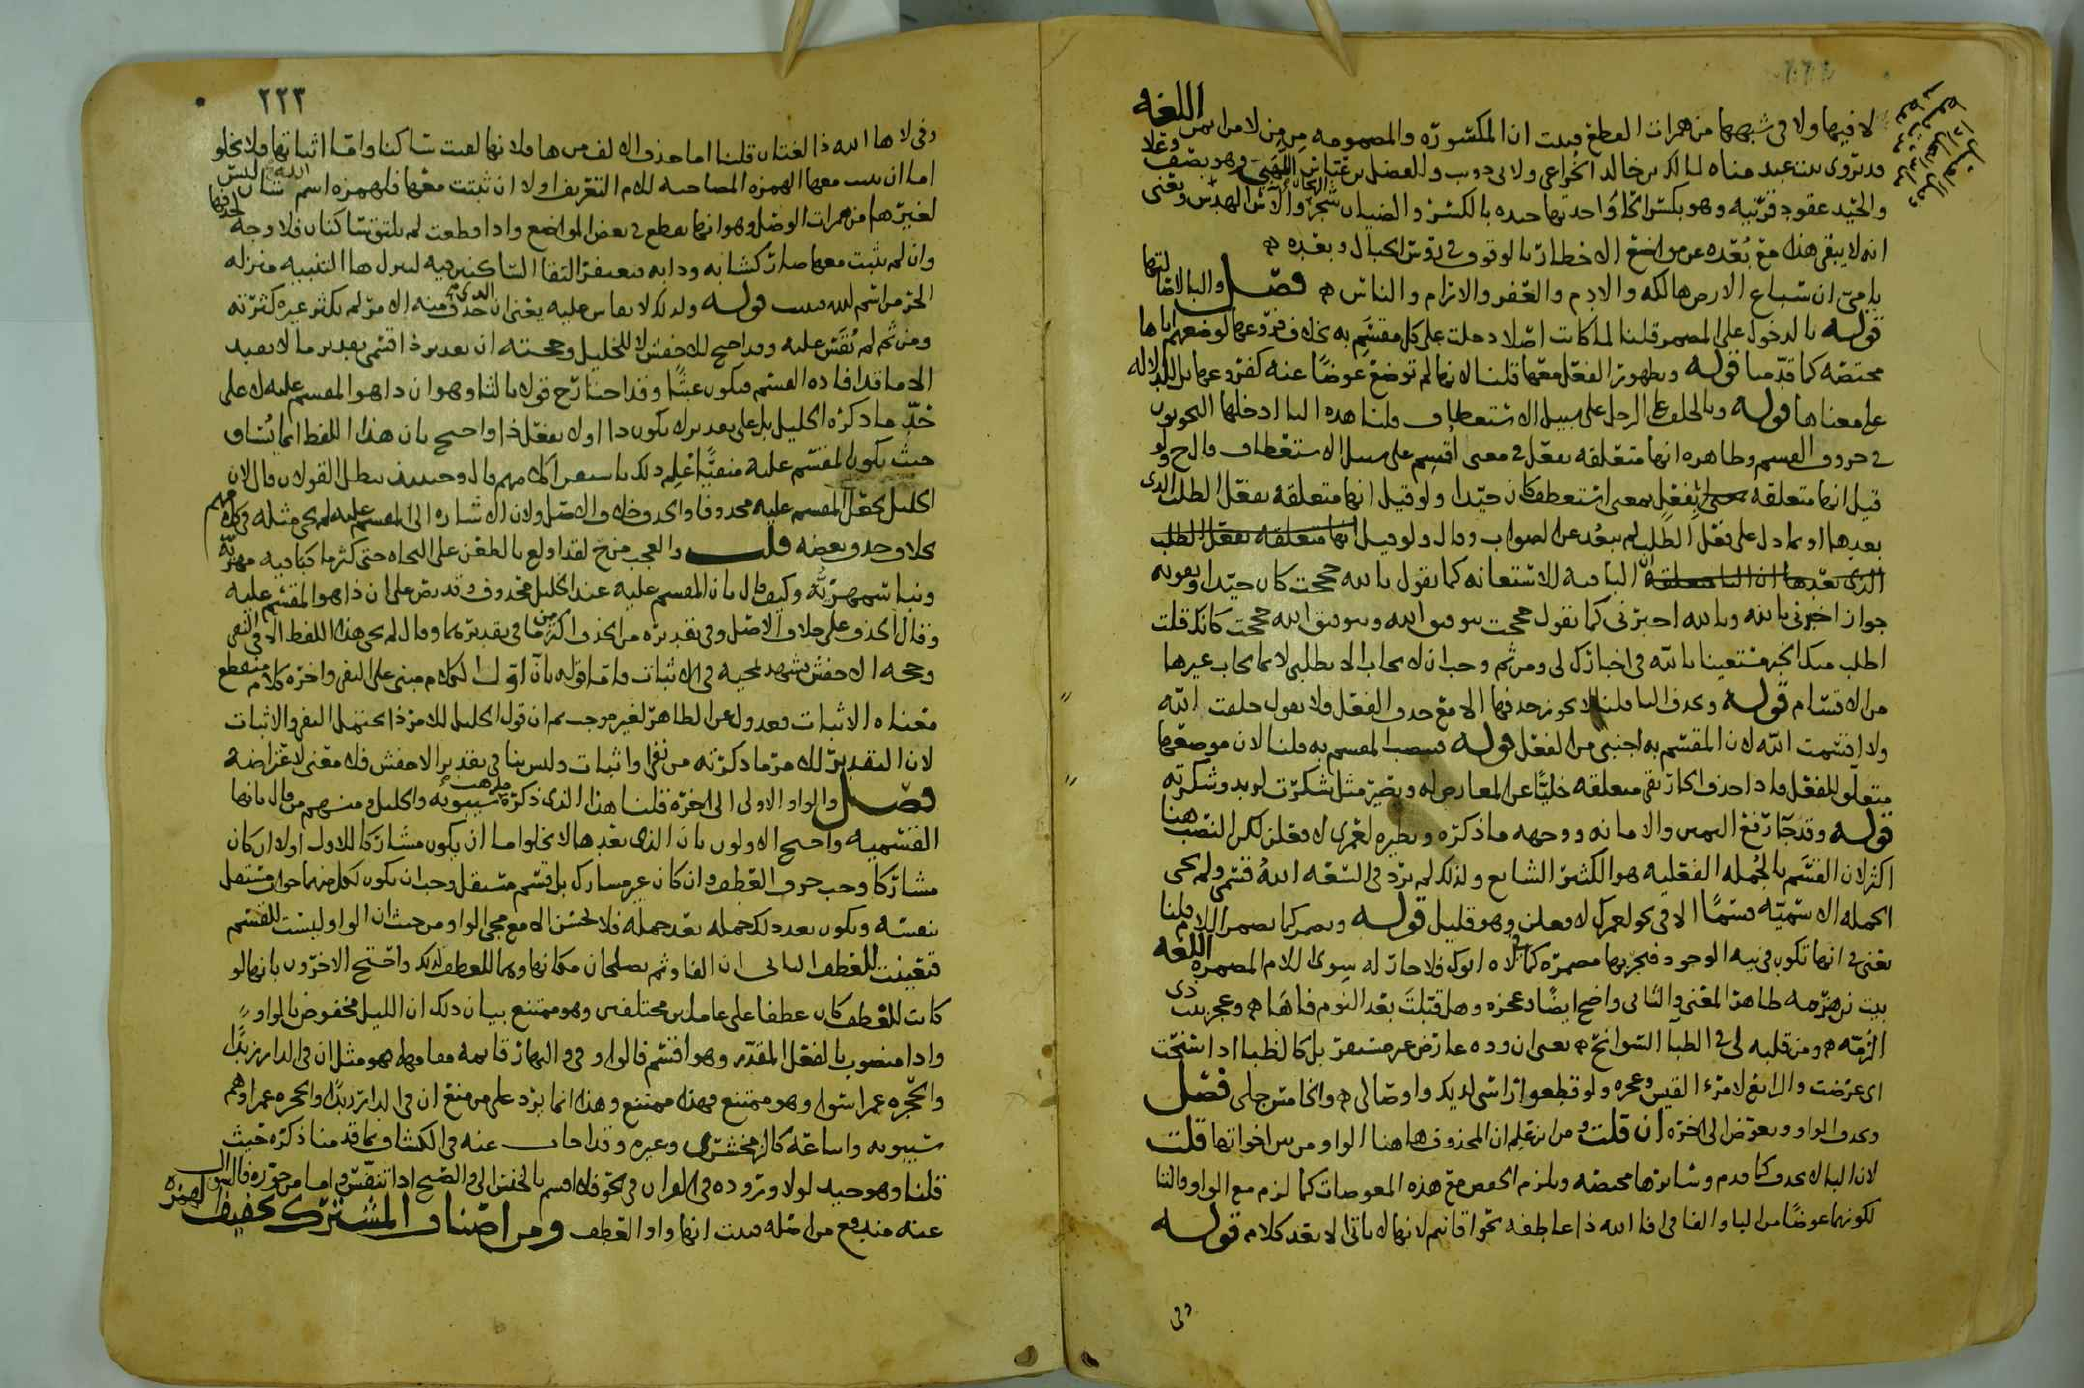 لا فيها ولا في شبهها من همزات القطع فثبت ان المكسورة والمضمومة من من لا من ايمن اللغه
قد تروى لعبد مناه لمالك بن خالد الخزاعي ولابي ذويب وللفضل بن عباس اللهبي وهو يصف وعلا
والحيد عقود قرنيه وهو بكسر الحا واحدتها حيده بالكسر والضيان شجر والآس الهدس ويعني
انه لا يبقى هذا مع بعده عن مواضع الاخطار بالوقوف في رؤس الجبال وبعده
يا مي ان سباع الارض هالكه والادم والعفر والارام والناس فصل والبا لاصالتها
قوله بالدخول على المضمر قلنا لما كانت اصلا دخلت على كل مقسم به بخلاف فروعها لوضعهم اياها
مختصه كما قدمنا قوله وبظهور الفعل معها قلنا لانها لم توضع عوضا عنه كفروعها بل للدلاله
على معناها قوله وبالحلف على الرجل على سبيل الاستعطاف قلنا هذه البا ادخلها النحويون
في حروف القسم وظاهره انها متعلقه بفعل في معنى اقسم على سبيل الاستعطاف قال ح ولو
قيل انها متعلقه بفعل بمعنى استعطف كان جيدا ولو قيل انها متعلقه بفعل الطلب الذي
بعدها او بما دل على فعل الطلب لم يبعد عن الصواب وقال ولو قيل انها متعلقه بفعل الطلب
الذي بعدها ان البا متعلقه البا فيه للاستعانه كما يقول بالله حججت كان جيدا ويقويه
جواز اخبرني بالله وبالله اخبرني كما تقول حججت بتوفيق الله وبتوفيق الله حججت كانك قلت
اطلب منك الخبر مستعينا بالله في اخبارك لي ومن ثم وجب ان لا يجاب الا بطلب لا بما يجاب غيرها
من الاقسام قوله وبحذف البا قلنا لا يجوز حذفها الا مع حذف الفعل ولا يقول حلفت الله
ولا اقسمت الله لان المقسم به اجنبي من الفعل قوله فينصب المقسم به قلنا لان موضعها
متعلق للفعل فاذا حذف الجار بقي متعلقه خليا عن المعارض له ويصير مثل شكرت لزيد وشكرته
قوله وقد جا رفع اليمين والامانه ووجهه ما ذكره ونظيره لعمرى لافعلن لكن النصب هنا
اكثر لان القسم بالجمله الفعليه هو الكثير الشايع ولذلك لم يرد في السعه الله قسمي ولم يجي
الجمله الاسميه قسما الا في نحو لعمرك لافعلن وهو قليل قوله ويضمر كما يضمر اللام قلنا
يعني في انها تكون في نيه الوجود فتجر بها مضمره كما في لاه ابوك فلا جار له سوى اللام المضمره اللغه
بيت زهير مه ظاهر المعنى والثاني واضح ايضا وعجزه وهل قبلت بعد النوم فاها وعجز بيت ذي
الرمه ومن قلبه لي في الظبا السوانح يعني ان وده عارض غير مستقر بل كالظبا اذا سنحت
اي عرضت والرابع لامرء القيس وعجزه ولو قطعوا راسي لديك واوصالي والخامس جلي فصل
وبحذف الواو ويعوض الى اخره ان قلت ومن اين علم ان المحذوف هاهنا الواو من بين اخواتها قلت
لان البا لا بحذف كما قدم وسايرها مختصه ويلزم الخفض مع هذه المعوضات كما لزم مع الواو والتا
لكونها عوضا من البا والفا في افا الله ذا عاطفه نحو افانتم لانها لا ياتي الا بعد كلام قوله
وفي
٢٢٣
وفي لاها الله ذا لغتان قلنا اما حذف الالف من ها فلانها لقيت ساكنا واما اثباتها فلا يخلو
اما ان يثبت معها الهمزه المصاحبه للام التعريف اولا ان ثبتت معها فلهمزه اسم الله شان ليس
لغيرها من همزات الوصل وهو انها تقطع في بعض المواضع واذا قطعت لم يلتق ساكنان فلا وجه لحذفها
وان لم يثبت معها صار كشابه ودابه فيغتفر التقا الساكنين فيه لتنزل ها التنبيه منزله
الجز من اسم الله قوله ولذلك لا يقاس عليه يعني ان الذي حذف منه الامر لم يكثر غيره كثرته
ومن ثم لم يقس عليه وقد احتج للاخفش لا للخليل وحجته ان تقدير ذا قسمي تقدير ما لا يفيد
الا ما قد افاده القسم فيكون عبثا وقد اختار ح قولا ثالثا وهو ان ذا هو المقسم عليه لا على
حد ما ذكره الخليل بل على تقدير لا يكون ذا اولا يفعل ذا واحتج بان هذا اللفظ انما يساق
حيث يكون المقسم عليه منفيا علم ذلك باستقرا كلامهم قال وحينئذ يبطل القولان قال لان
الخليل يجعل المقسم عليه محذوفا والحذف خلاف الاصل ولان الاشاره الى المقسم عليه لم يجي مثله في كلامهم
كلا وحد وبعضه قلت والعجب من ح لقد اولع بالطعن على النحاه حتى كثر ما كبا فيه مهره
ونبا سمهريه وكيف قال بان المقسم عليه عند الخليل محذوف وقد نص على ان ذا هو المقسم عليه
وقال الحذف على خلاف الاصل وفي تقديره من الحذف اكثر من ما في تقديرهما وقال لم يجي هذا اللفظ الا في النفي
وحجه الاخفش تشهد بمجيه في الاثبات واما قوله بان اول الكلام مبني على النفي واخره كلام منقطع
معناه الاثبات فعدول عن الظاهر لغير موجب ثم ان قول الخليل للامر ذا يحتمل النفي والاثبات
لان التقدير للامر ما ذكرته من نفي او اثبات وليس بنا في تقدير الاخفش فلا معنى لاعتراضه
فصل والواو الاولى الى اخره قلنا هذا الذي ذكره مذهب سيبويه والخليل ومنهم من قال بانها
القسميه واحتج الاولون بان الذي بعدها لا يخلو اما ان يكون مشاركا للاول اولا ان كان
مشاركا وجب حرف العطف وان كان غير مشارك بل قسم مستقل وجب ان يكون لكل منهما جواب مستقل
بنفسه ويكون بعد ذلك جمله بعد جمله فلا يحسن الا مع مجي الواو من حيث ان الواو ليست للقسم
فتعينت للعطف الثاني ان الفا وثم يصلحان مكانها وهما للعطف لذلك واحتج الاخرون بانها لو
كانت للعطف كان عطفا على عاملين مختلفين وهو ممتنع بيان ذلك ان الليل مخفوض بالواو
واذا منصوب بالفعل المقدر وهو اقسم فالواو في والنهار قايمه مقامهما فهو مثل ان في الدار زيدا
والحجره عمرا سوا وهو ممتنع فهذا ممتنع وهذا انما يرد على من منع ان في الدار زيدا والحجره عمرا وهم
سيبويه واتباعه كالزمخشري وغيره وقد اجاب عنه في الكشاف بما قدمنا ذكره حيث
قلنا وهو جيد لولا وروده في القران في نحو فلا اقسم بالخنس الى والصبح اذا تنفس واما من جوزه فالسوال
عنه مندفع من اصله فثبت انها واو العطف ومن اصناف المشترك تخفيف الهمزه